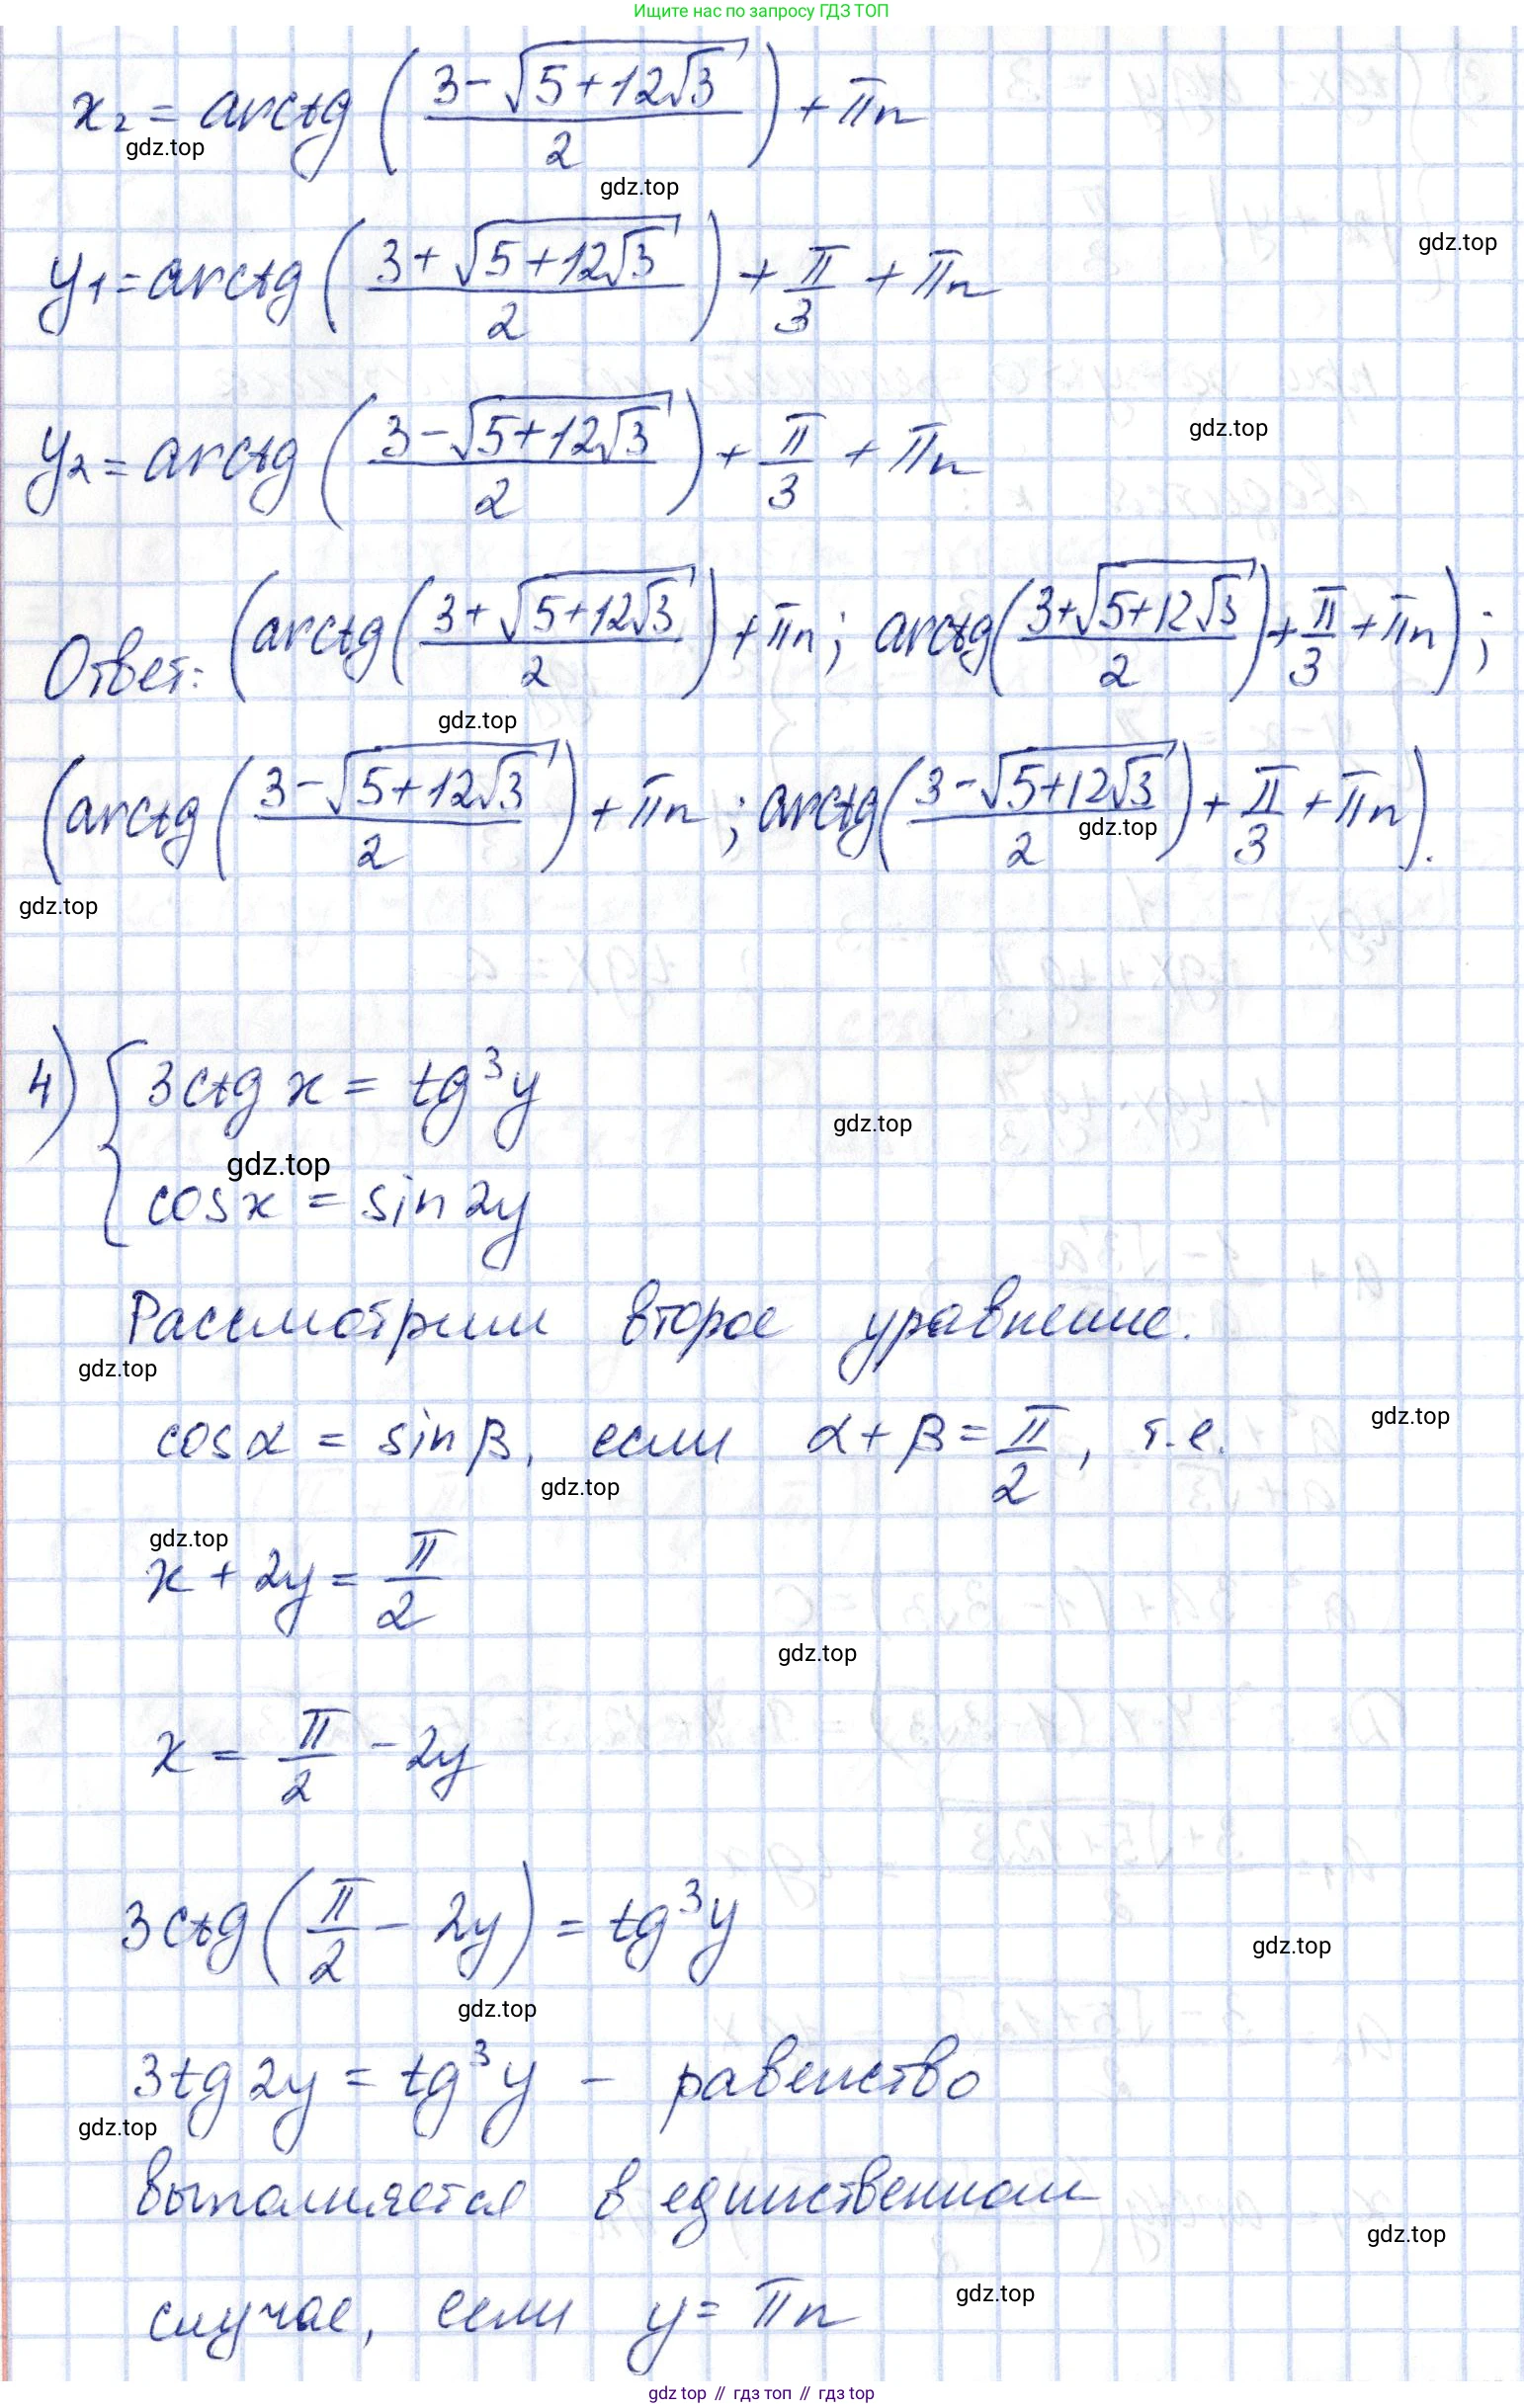 Ищите нас по запросу ГДЗ ТОП
x₂ = arctg ((3-√(5+12√3))/2) + πn
gdz.top
gdz.top
y₁ = arctg ((3+√(5+12√3))/2) + π/3 + πn
gdz.top
y₂ = arctg ((3-√(5+12√3))/2) + π/3 + πn
gdz.top
Ответ: (arctg((3+√(5+12√3))/2) + πn; arctg((3+√(5+12√3))/2) + π/3 + πn);
gdz.top
(arctg((3-√(5+12√3))/2) + πn; arctg((3-√(5+12√3))/2) + π/3 + πn).
gdz.top
gdz.top
4) { 3ctg x = tg³y
gdz.top
gdz.top
cos x = sin 2y
Рассмотрим второе уравнение.
gdz.top
cos α = sin β, если α + β = π/2, т.е.
gdz.top
gdz.top
gdz.top
x + 2y = π/2
gdz.top
x = π/2 - 2y
3ctg(π/2 - 2y) = tg³y
gdz.top
gdz.top
3tg 2y = tg³y - равенство
gdz.top
выполняется в единственном
gdz.top
случае, если y = πn
gdz.top
gdz top // гдз топ // гдз top